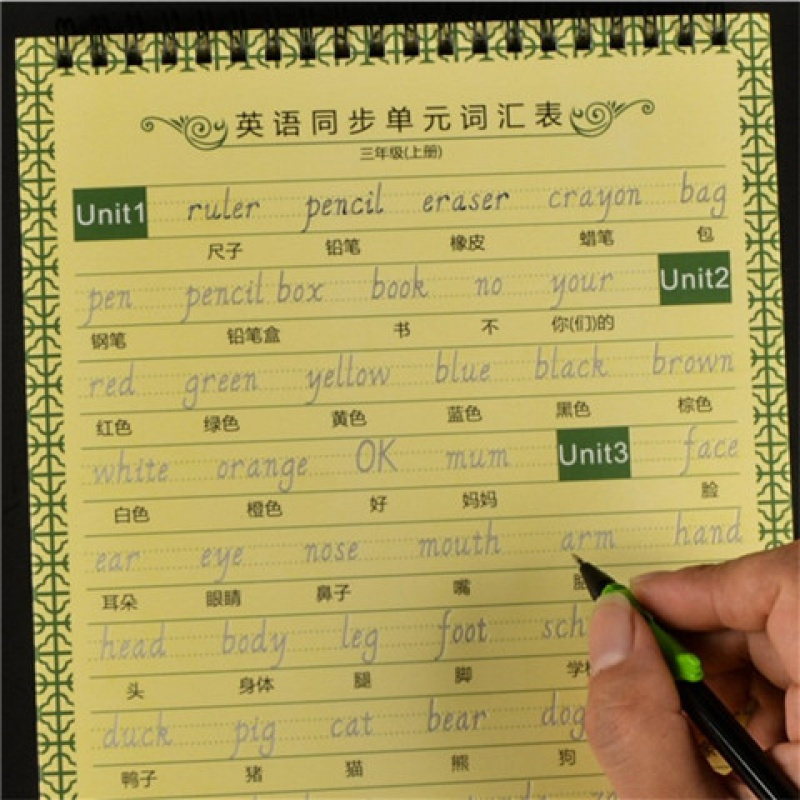 英语同步单元词汇表
三年级(上册)
Unit1 ruler pencil eraser crayon bag
尺子 铅笔 橡皮 蜡笔 包
pen pencil box book no your Unit2
钢笔 铅笔盒 书 不 你(们)的
red green yellow blue black brown
红色 绿色 黄色 蓝色 黑色 棕色
white orange OK mum Unit3 face
白色 橙色 好 妈妈 脸
ear eye nose mouth arm hand
耳朵 眼睛 鼻子 嘴
head body leg foot sch
头 身体 腿 脚 学
duck pig cat bear dog
鸭子 猪 猫 熊 狗